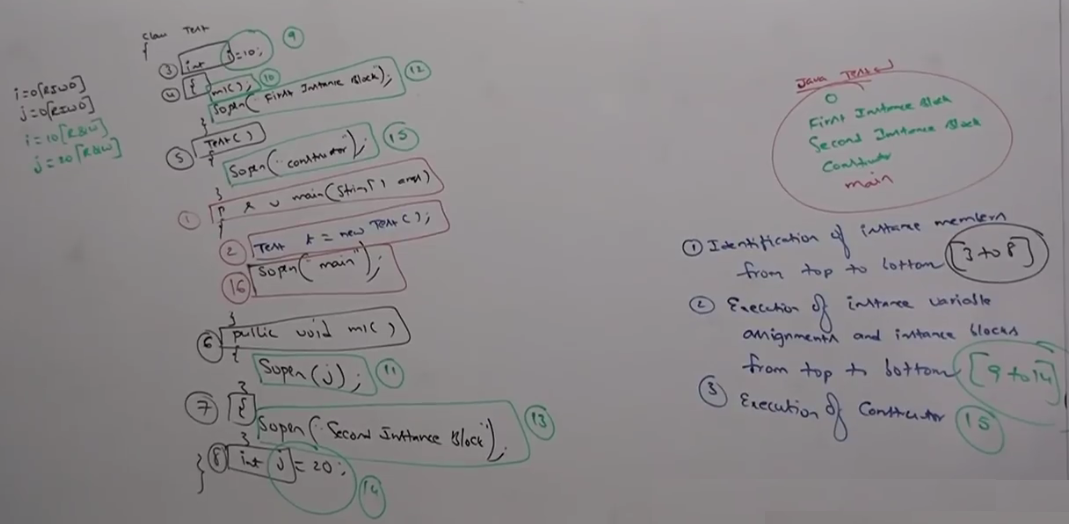 class Test
{
③ int i=10; ⑨
④ { m1(); ⑩
Sopln("First Instance Block"); ⑫
}
⑤ Test()
{
Sopln("constructor"); ⑮
}
① p s v main(String[] args)
{
② Test t = new Test();
⑯ Sopln("main");
}
⑥ public void m1()
{
Sopln(j); ⑪
}
⑦ {
Sopln("Second Instance Block"); ⑬
}
⑧ int j = 20; ⑭
}
i=0[RIWO]
j=0[RIWO]
i=10[R&W]
j=20[R&W]
Java Test↵
0
First Instance Block
Second Instance Block
Constructor
main
① Identification of instance members
from top to bottom [3 to 8]
② Execution of instance variable
assignments and instance blocks
from top to bottom [9 to 14]
③ Execution of Constructor ⑮